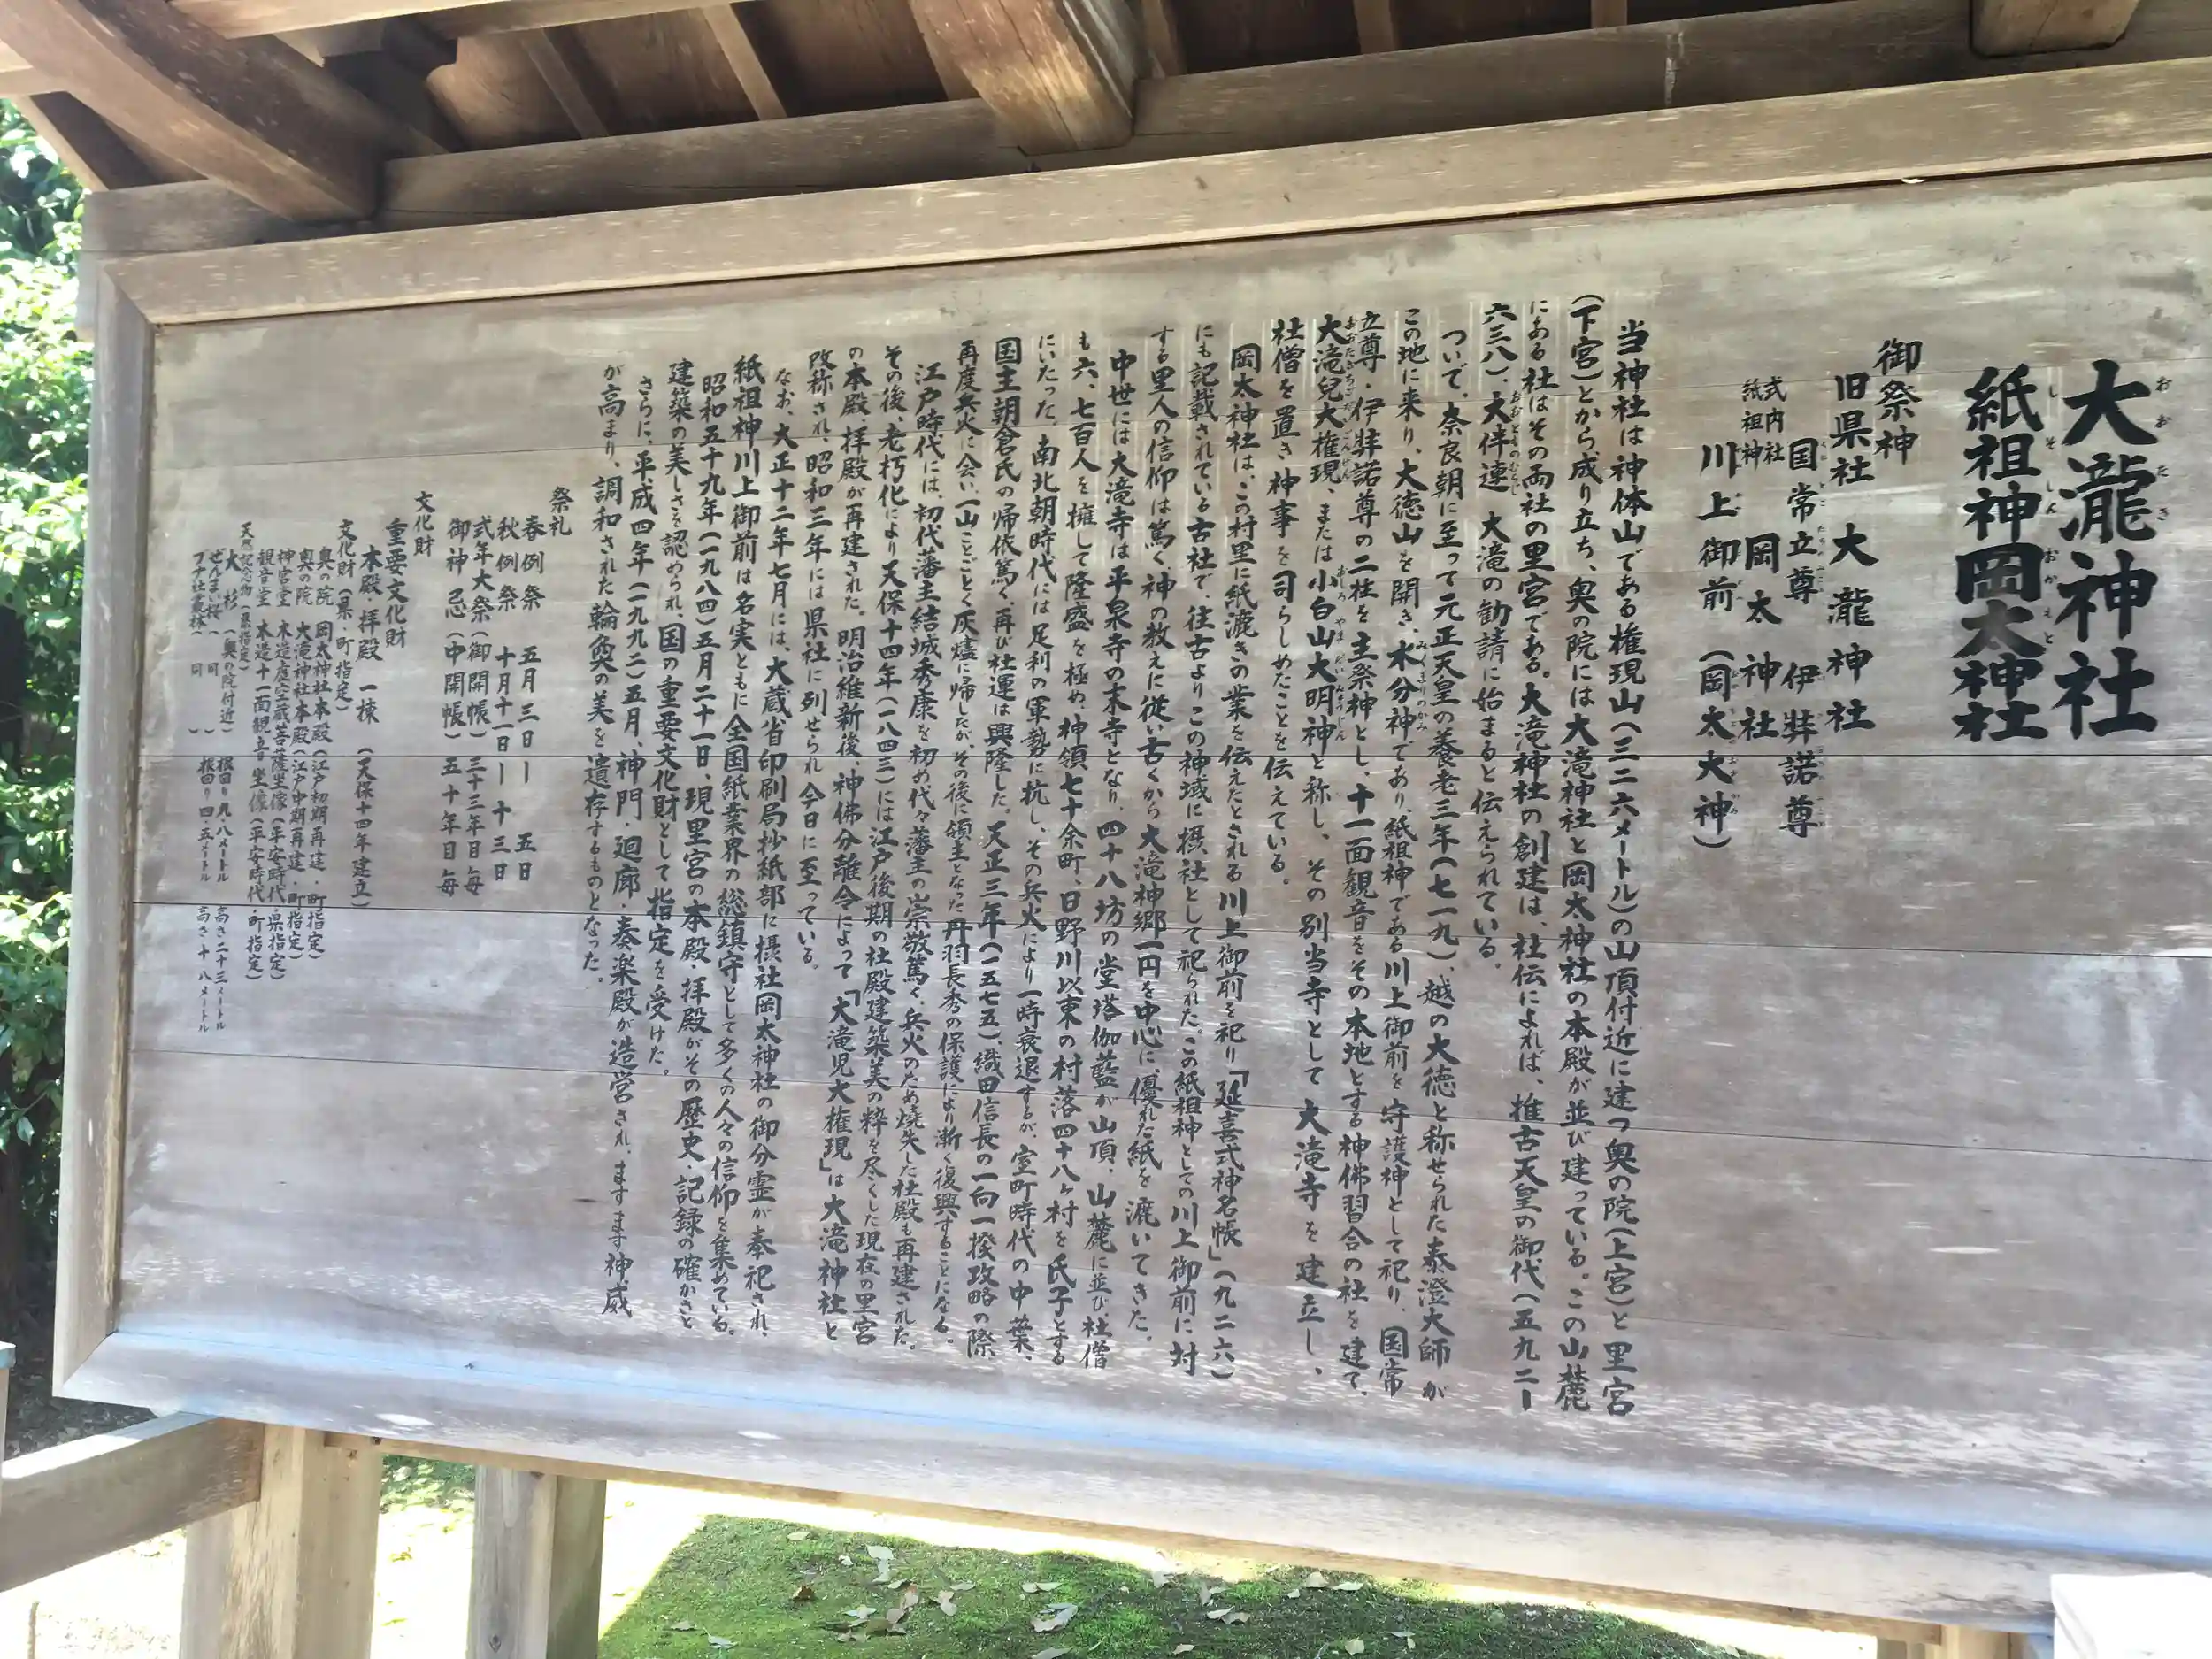 大瀧神社
紙祖神岡太神社
御祭神
旧県社 大瀧神社
国常立尊 伊弉諾尊
式内社
紙祖神 岡太神社
川上御前(岡太大神)
当神社は神体山である権現山(三二六メートル)の山頂付近に建つ奥の院(上宮)と里宮
(下宮)とから成り立ち、奥の院には大滝神社と岡太神社の本殿が並び建っている。この山麓
にある社はその両社の里宮である。大滝神社の創建は、社伝によれば、推古天皇の御代(五九二ー
六三八)、大伴連大滝の勧請に始まると伝えられている。
ついで、奈良朝に至って元正天皇の養老三年(七一九)、越の大徳と称せられた泰澄大師が
この地に来り、大徳山を開き、水分神であり、紙祖神である川上御前を守護神として祀り、国常
立尊・伊弉諾尊の二柱を主祭神とし、十一面観音をその本地とする神佛習合の社を建て、
大滝兒大権現、または小白山大明神と称し、その別当寺として大滝寺を建立し、
社僧を置き神事を司らしめたことを伝えている。
岡太神社は、この村里に紙漉きの業を伝えたとされる川上御前を祀り「延喜式神名帳」(九二六)
にも記載されている古社で、往古よりこの神域に摂社として祀られた。この紙祖神としての川上御前に対
する里人の信仰は篤く、神の教えに従い古くから大滝神郷一円を中心に、優れた紙を漉いてきた。
中世には大滝寺は平泉寺の末寺となり、四十八坊の堂塔伽藍が山頂、山麓に並び、社僧
も六、七百人を擁して隆盛を極め、神領七十余町、日野川以東の村落四十八ヶ村を氏子とする
にいたった。南北朝時代には足利の軍勢に抗し、その兵火により一時衰退するが、室町時代の中葉、
国主朝倉氏の帰依篤く、再び社運は興隆した。天正三年(一五七五)、織田信長の一向一揆攻略の際、
再度兵火に会い、一山ことごとく灰燼に帰したが、その後に領主となった丹羽長秀の保護により漸く復興することになる。
江戸時代には、初代藩主結城秀康を初め代々藩主の崇敬篤く、兵火のため焼失した社殿も再建された。
その後、老朽化により天保十四年(一八四三)には江戸後期の社殿建築美の粋を尽くした現在の里宮
の本殿、拝殿が再建された。明治維新後、神佛分離令によって「大滝児大権現」は大滝神社と
改称され、昭和三年には県社に列せられ今日に至っている。
なお、大正十二年七月には、大蔵省印刷局抄紙部に摂社岡太神社の御分霊が奉祀され、
紙祖神川上御前は名実ともに全国紙業界の総鎮守として多くの人々の信仰を集めている。
昭和五十九年(一九八四)五月二十一日、現里宮の本殿・拝殿がその歴史・記録の確かさと
建築の美しさを認められ、国の重要文化財として指定を受けた。
さらに、平成四年(一九九二)五月、神門・廻廊・奏楽殿が造営され、ますます神威
が高まり、調和された輪奐の美を遺存するものとなった。
祭礼
春例祭 五月三日ー五日
秋例祭 十月十一日ー十三日
式年大祭(御開帳)三十三年目毎
御神忌(中開帳)五十年目毎
文化財
重要文化財
本殿・拝殿 一棟(天保十四年建立)
文化財(県・町指定)
奥の院 岡太神社本殿(江戸初期再建・町指定)
奥の院 大滝神社本殿(江戸中期再建・町指定)
神宮堂 木造虚空蔵菩薩坐像(平安時代・県指定)
観音堂 木造十一面観音坐像(平安時代・町指定)
天然記念物(県指定)
大杉(奥の院付近) 根回り九・八メートル 高さ二十三メートル
ぜんまい桜( 同 ) 根回り四・五メートル 高さ十八メートル
ブナ社叢林( 同 )